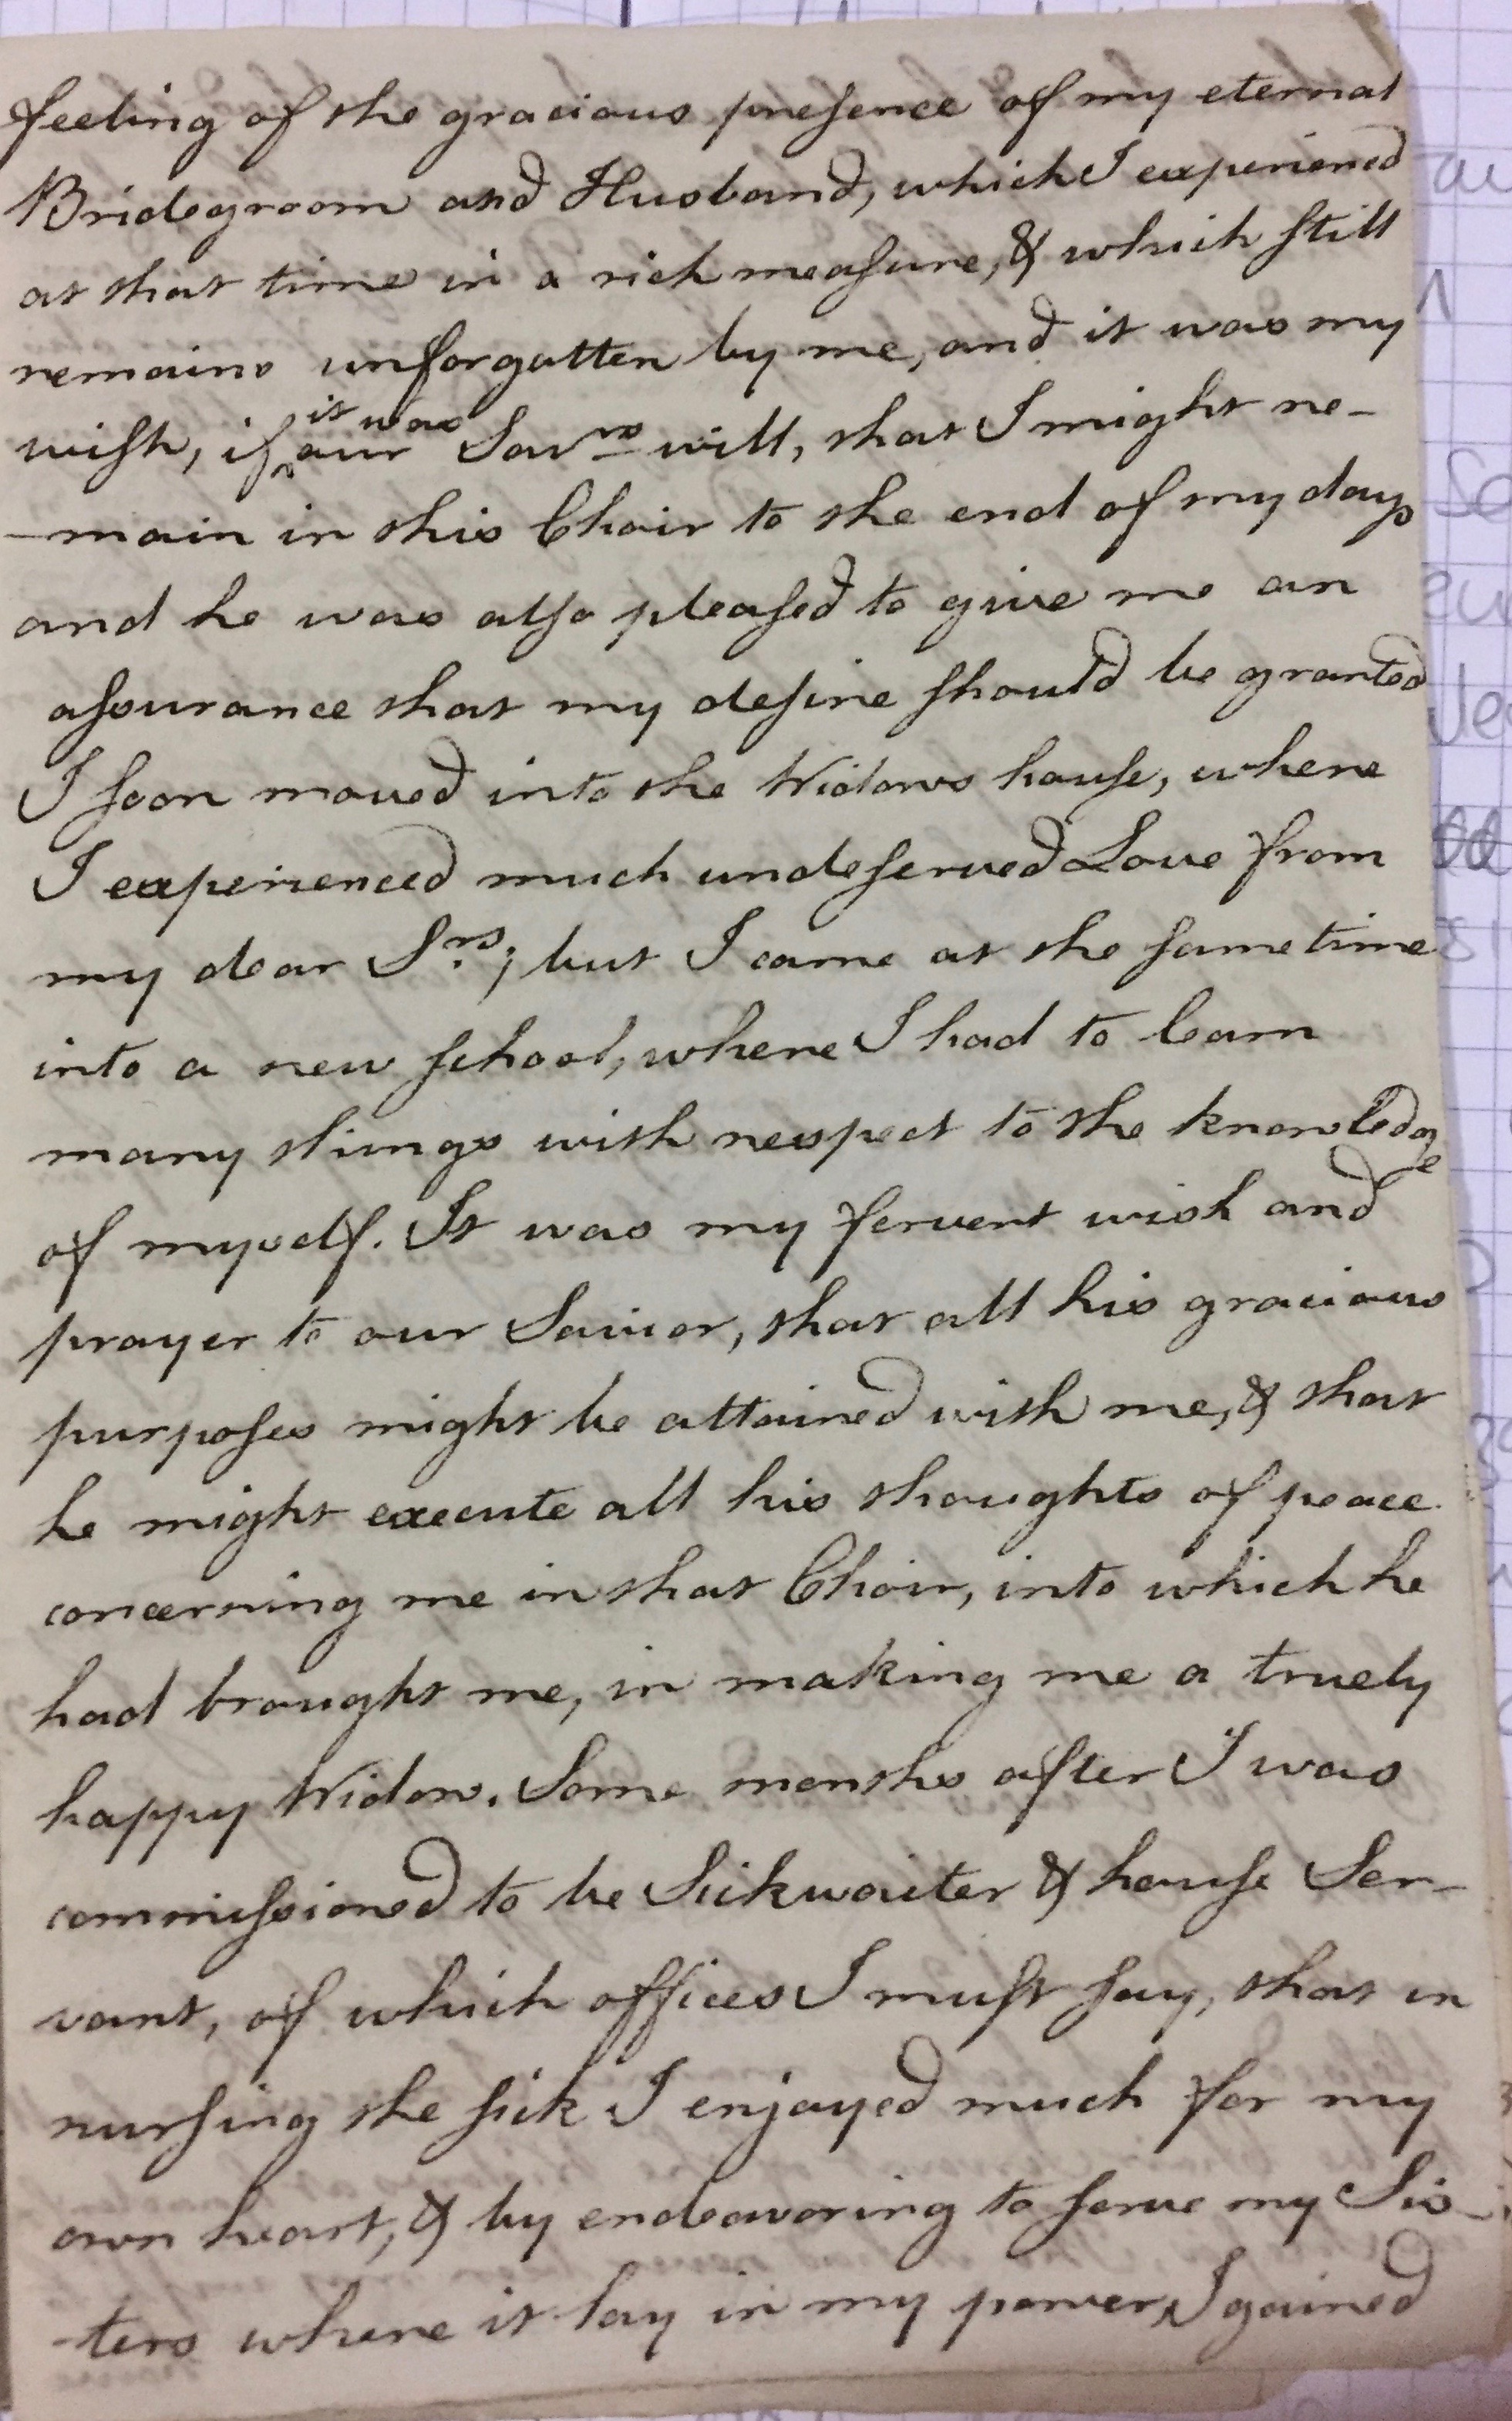 feeling of the gracious presence of my eternal
Bridegroom and Husband, which I experienced
at that time in a rich measure, & which still
remains unforgotten by me, and it was my
wish, if it was our Savrs will, that I might re-
-main in this Choir to the end of my days
and he was also pleased to give me an
assurance that my desire should be granted
I soon moved into the Widows house, where
I experienced much undeserved Love from
my dear Srs; but I came at the same time
into a new school, where I had to learn
many things with respect to the knowledge
of myself. It was my fervent wish and
prayer to our Savior, that all his gracious
purposes might be attained with me, & that
he might execute all his thoughts of peace
concerning me in that Choir, into which he
had brought me, in making me a truely
happy Widow. Some months after I was
commissioned to be Sickwaiter & house Ser-
vant, of which offices I must say, that in
nursing the sick I enjoyed much for my
own heart, & by endeavoring to serve my Sis-
-ters where it lay in my power, I gained